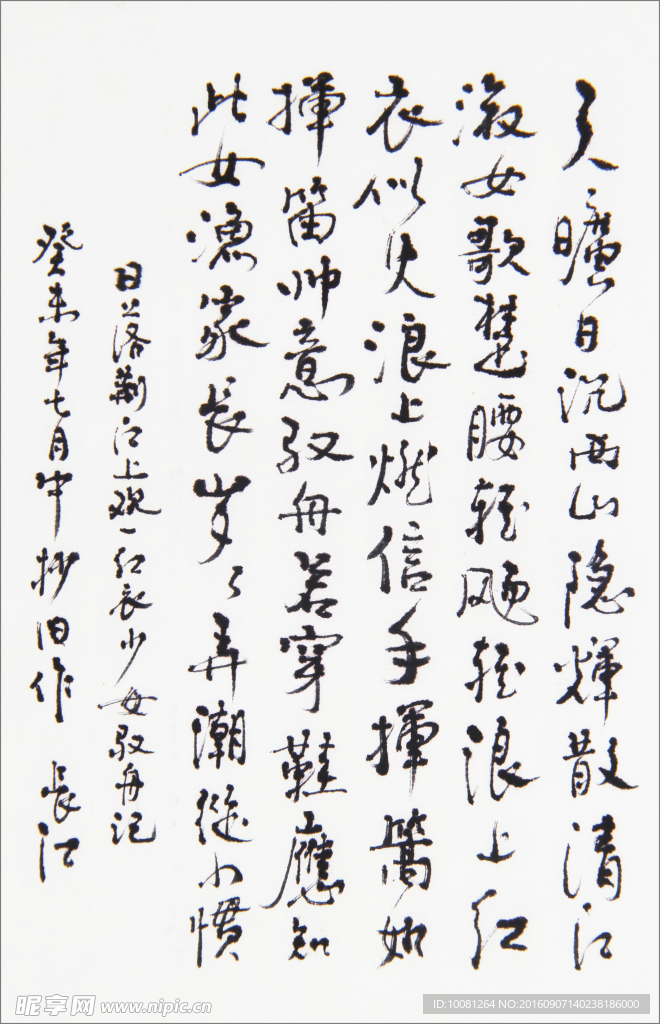 天曠日沉西山隐輝散清江
淑女歌楚腰轻飏轻浪上红
衣似火浪上燃信手揮篙如
揮笛帅意驭舟若穿鞋應知
此女漁家長岁々弄潮從小慣
日落荆江上观一红衣少女驭舟记
癸未年七月中抄旧作 長江
昵享网 www.nipic.cn
ID:10081264 NO:20160907140238186000